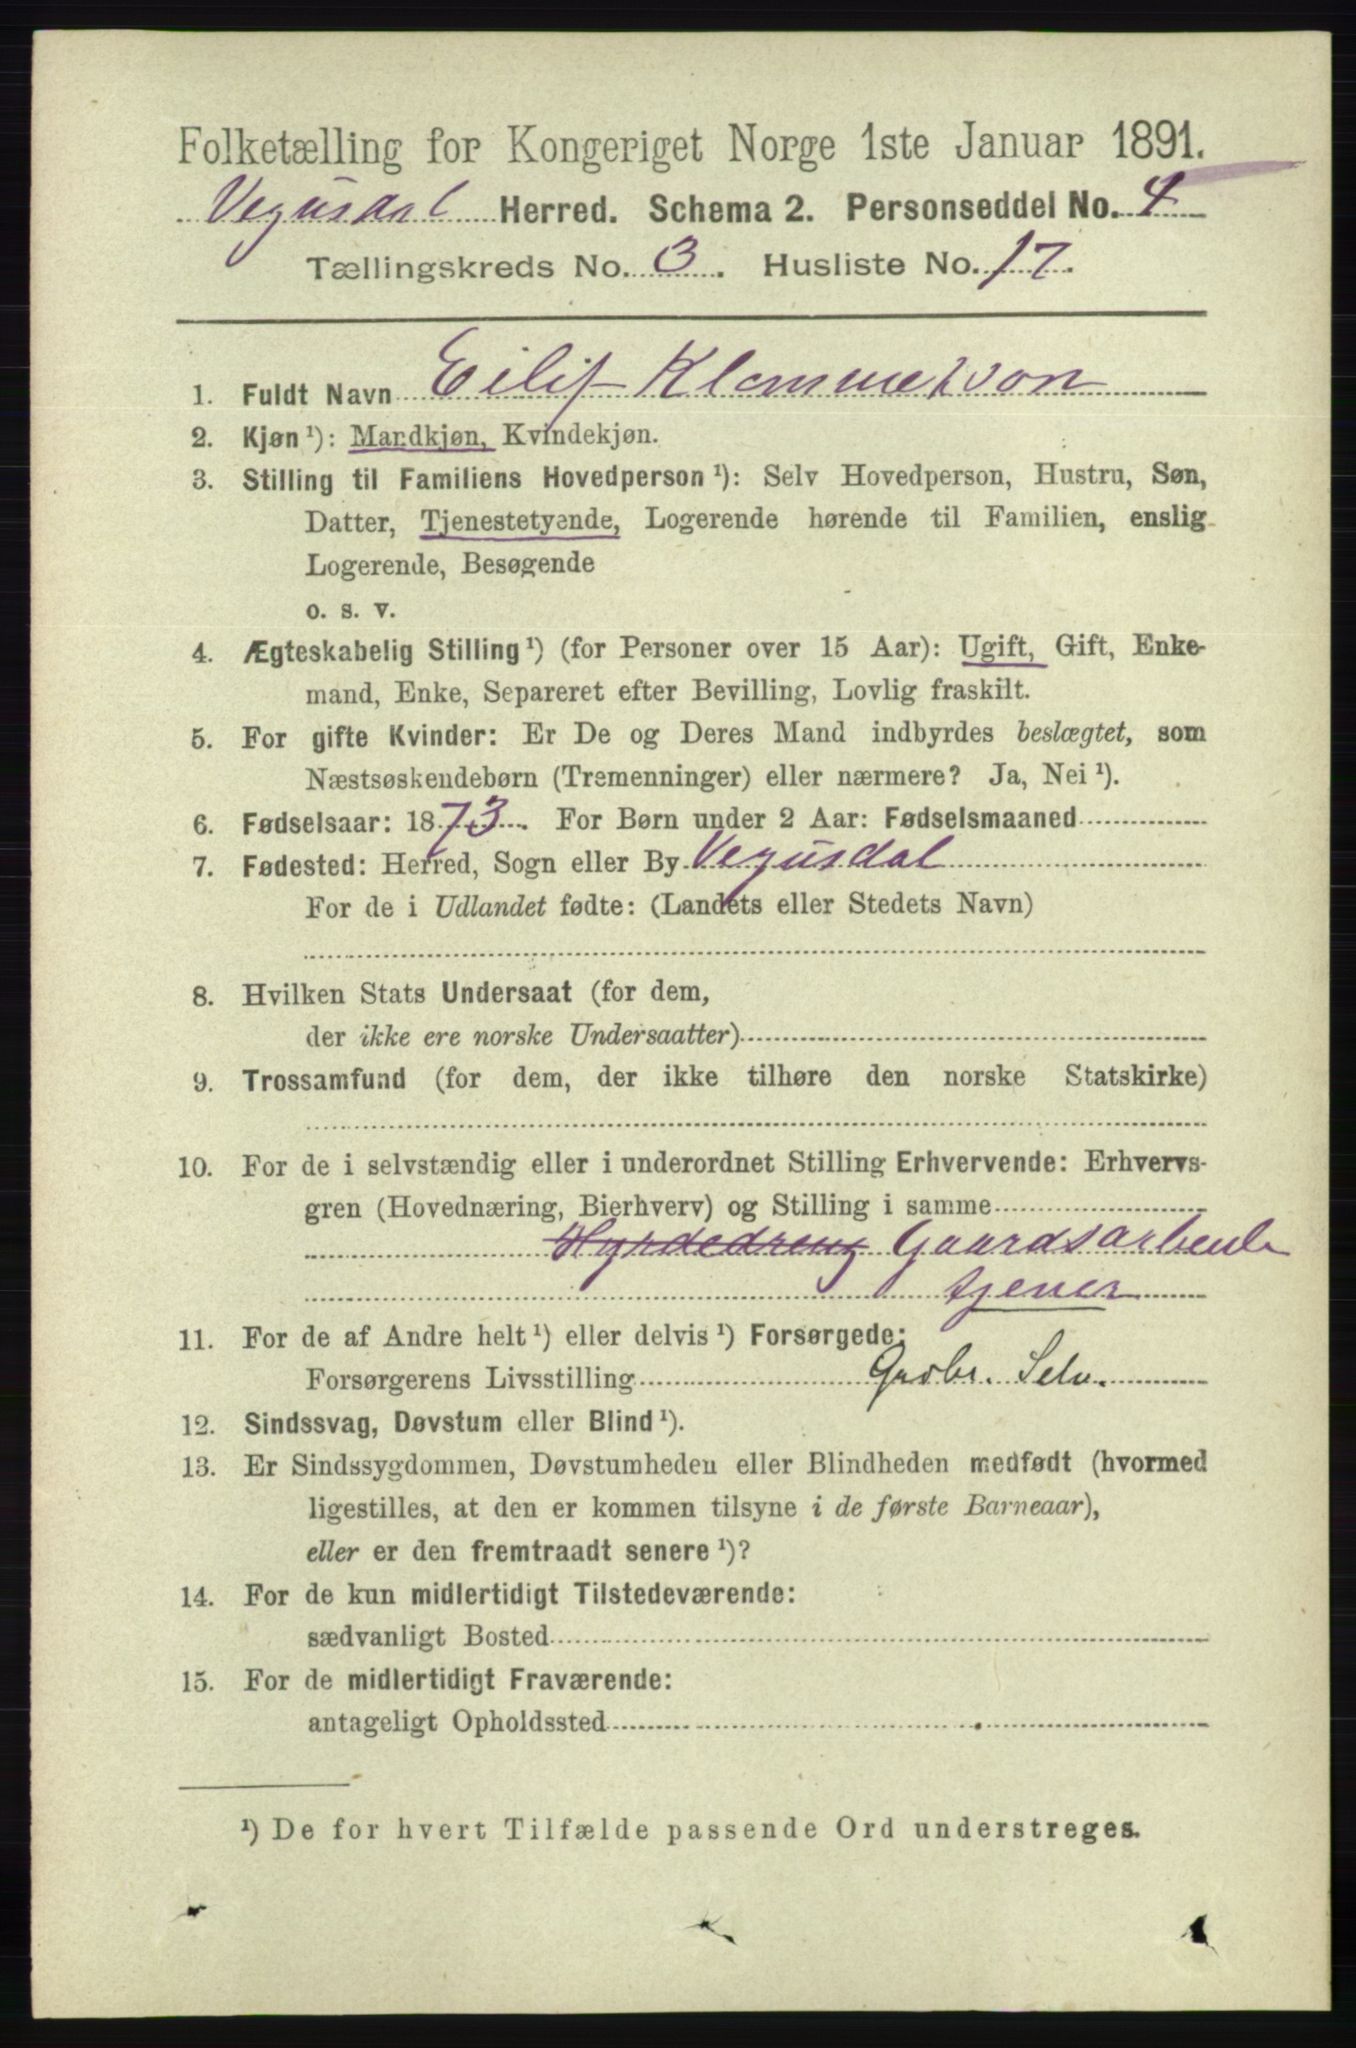 Folketælling for Kongeriget Norge 1ste Januar 1891.
Vegusdal Herred. Schema 2. Personseddel No. 4
Tællingskreds No. 3. Husliste No. 17.
1. Fuldt Navn Eilif Klemmetson
2. Kjøn ¹): Mandkjøn, Kvindekjøn.
3. Stilling til Familiens Hovedperson ¹): Selv Hovedperson, Hustru, Søn,
Datter, Tjenestetyende, Logerende hørende til Familien, enslig
Logerende, Besøgende
o. s. v.
4. Ægteskabelig Stilling ¹) (for Personer over 15 Aar): Ugift, Gift, Enke-
mand, Enke, Separeret efter Bevilling, Lovlig fraskilt.
5. For gifte Kvinder: Er De og Deres Mand indbyrdes beslægtet, som
Næstsøskendebørn (Tremenninger) eller nærmere? Ja, Nei ¹).
6. Fødselsaar: 1873. For Børn under 2 Aar: Fødselsmaaned
7. Fødested: Herred, Sogn eller By Vegusdal
For de i Udlandet fødte: (Landets eller Stedets Navn)
8. Hvilken Stats Undersaat (for dem,
der ikke ere norske Undersaatter)
9. Trossamfund (for dem, der ikke tilhøre den norske Statskirke)
10. For de i selvstændig eller i underordnet Stilling Erhvervende: Erhvervs-
gren (Hovednæring, Bierhverv) og Stilling i samme
Hyrdedreng Gaardsarbeide
tjener
11. For de af Andre helt ¹) eller delvis ¹) Forsørgede:
Forsørgerens Livsstilling Gaabr. Selv.
12. Sindssvag, Døvstum eller Blind ¹).
13. Er Sindssygdommen, Døvstumheden eller Blindheden medfødt (hvormed
ligestilles, at den er kommen tilsyne i de første Barneaar),
eller er den fremtraadt senere ¹)?
14. For de kun midlertidigt Tilstedeværende:
sædvanligt Bosted
15. For de midlertidigt Fraværende:
antageligt Opholdssted
¹) De for hvert Tilfælde passende Ord understreges.